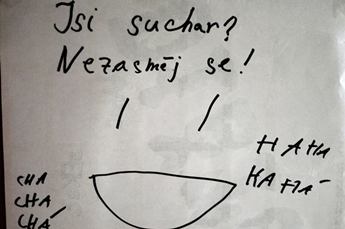 Jsi suchar?
Nezasměj se!
HAHA
HAHÁ
CHA
CHA
CHÁ